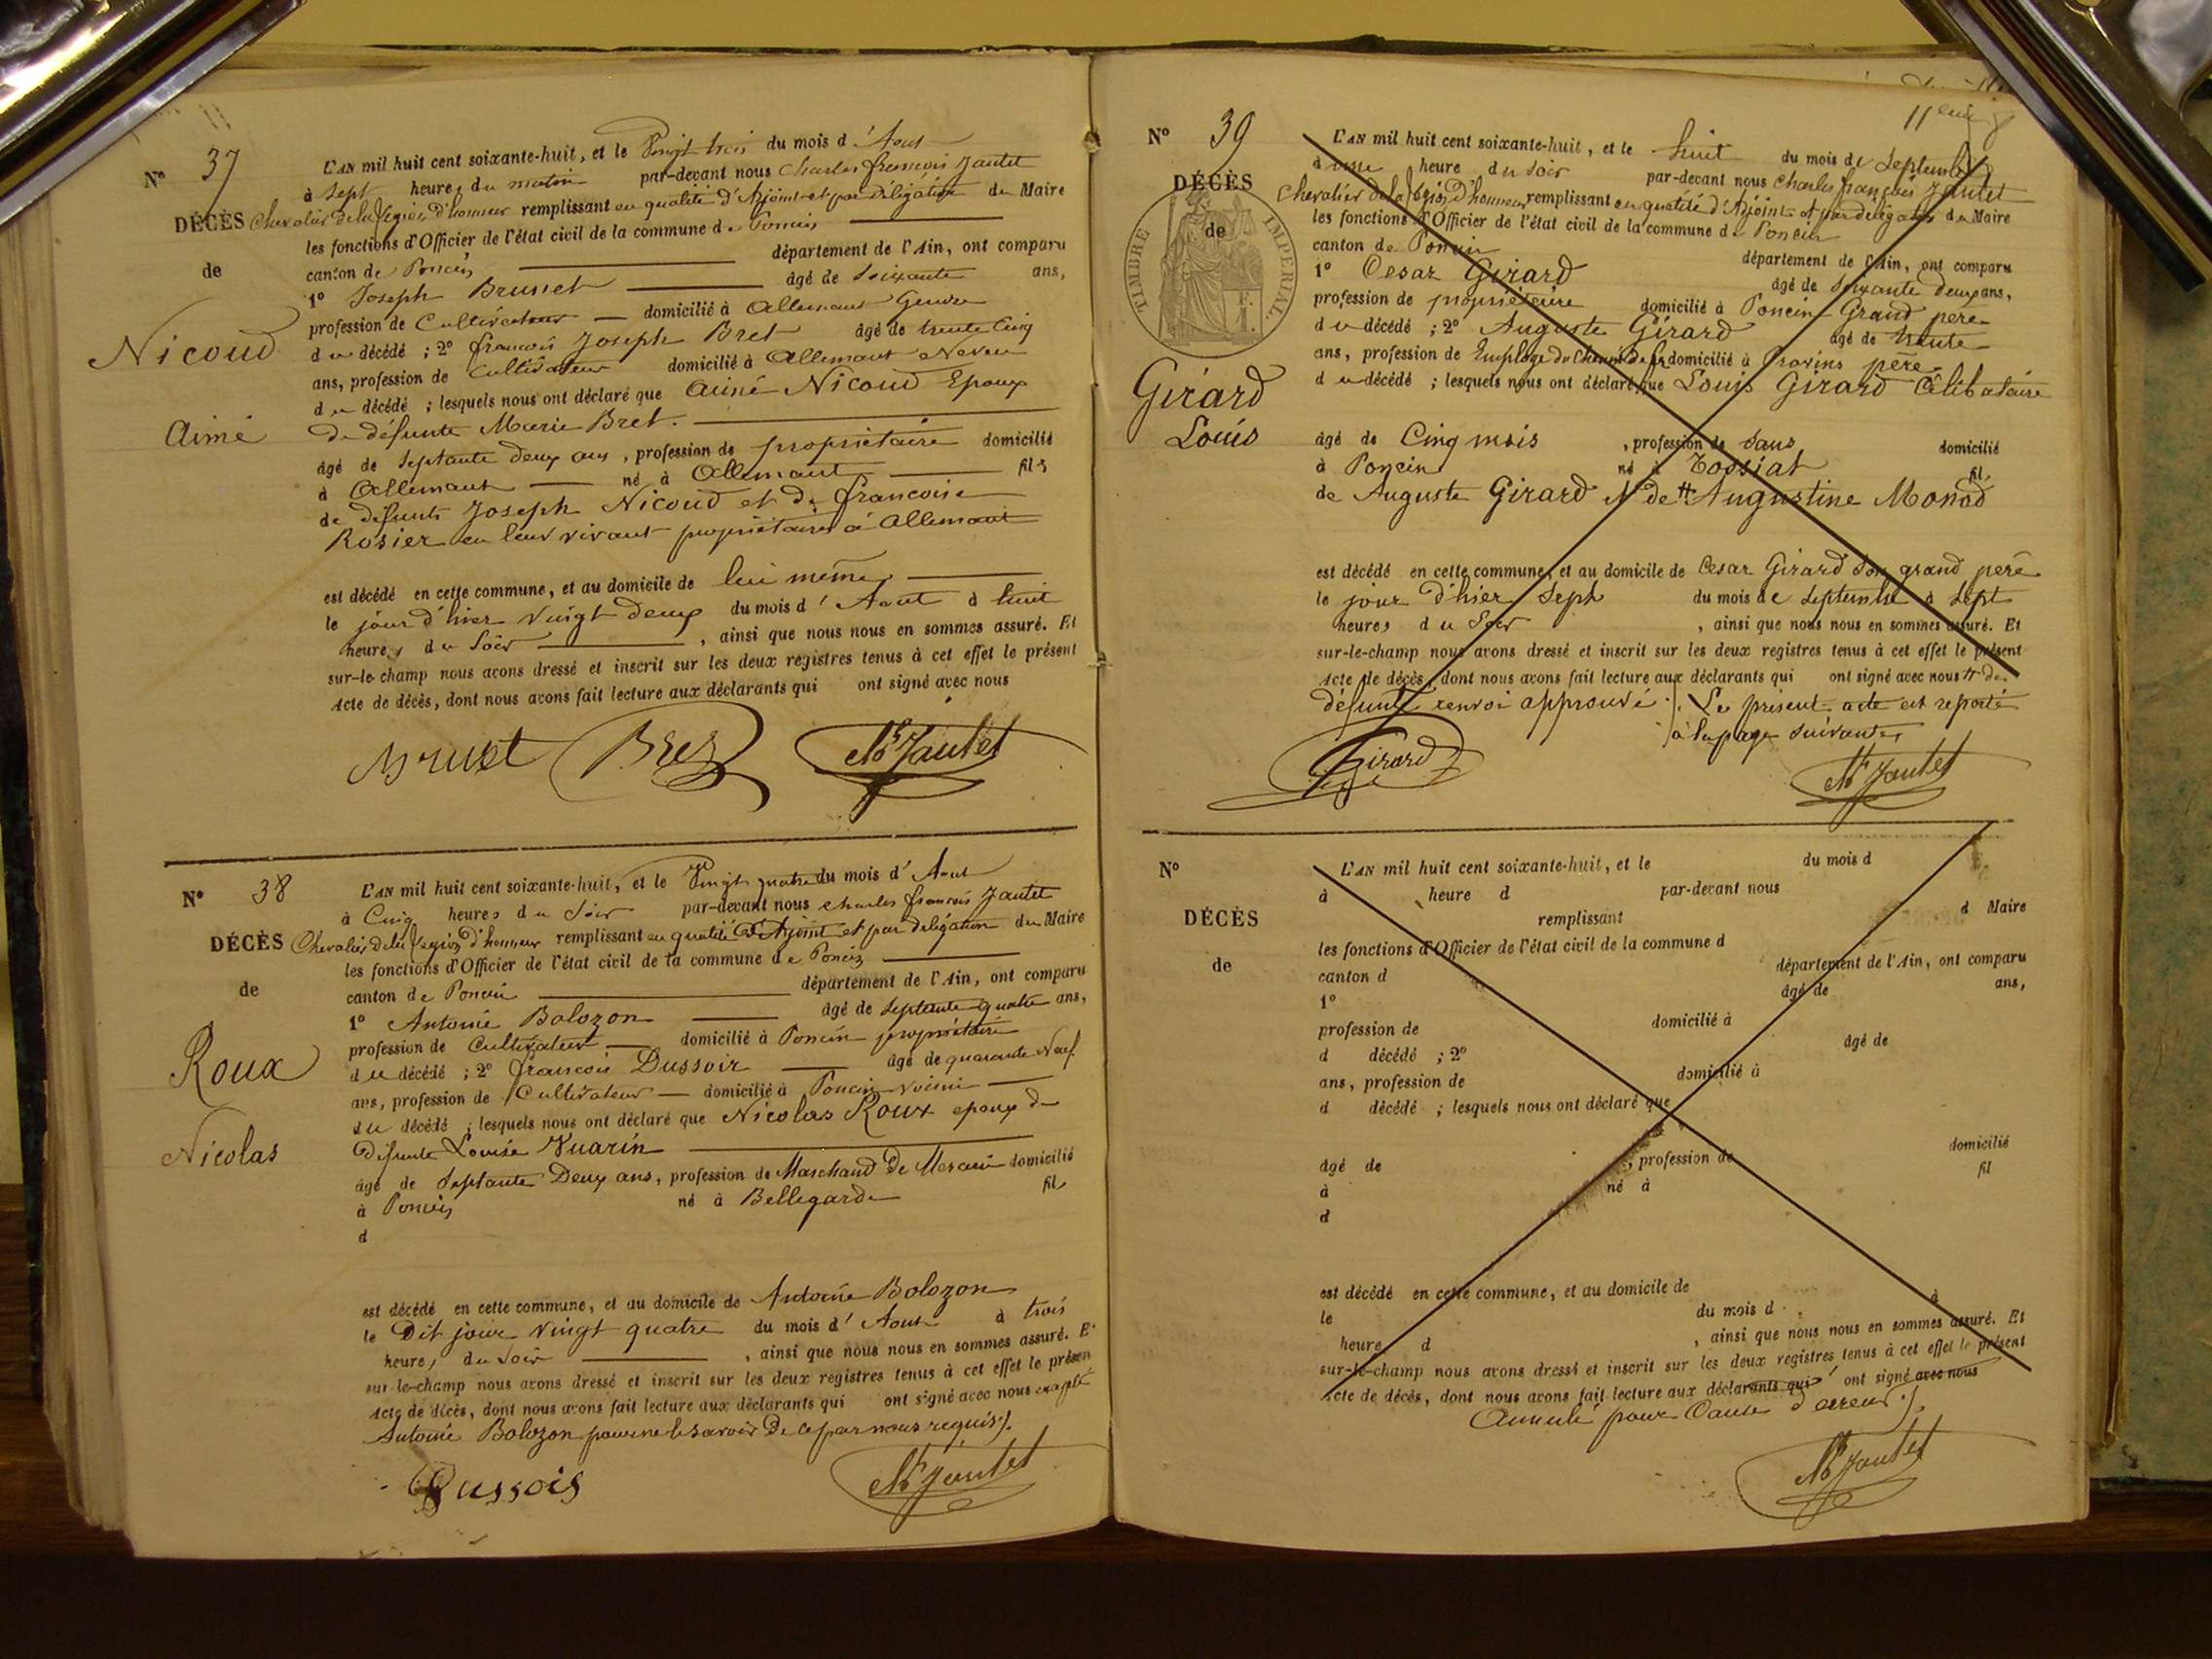 N° 37
DÉCÈS
de
Nicoud
Aimé
L'AN mil huit cent soixante-huit, et le Vingt trois du mois d'Aout
à Sept heures du matin par-devant nous Charles françois Jantet
Chevalier de la légion d'honneur remplissant en qualité d'Adjoint et par délégation du Maire
les fonctions d'Officier de l'état civil de la commune de Poncin
canton de Poncin département de l'Ain, ont comparu
1° Joseph Brunet âgé de Soixante ans,
profession de Cultivateur domicilié à Allemant Gendre
du décédé ; 2° françois Joseph Bret âgé de trente Cinq
ans, profession de Cultivateur domicilié à Allemant Neveu
du décédé ; lesquels nous ont déclaré que Aimé Nicoud Epoux
de défunte Marie Bret.
âgé de Septante deux ans, profession de propriétaire domicilié
à Allemant né à Allemant fils
de défunts Joseph Nicoud et de francoise
Rosier en leur vivant propriétaires à Allemant
est décédé en cette commune, et au domicile de lui même
le jour d'hier Vingt deux du mois d'Aout à huit
heures du Soir , ainsi que nous nous en sommes assuré. Et
sur-le-champ nous avons dressé et inscrit sur les deux registres tenus à cet effet le présent
Acte de décès, dont nous avons fait lecture aux déclarants qui ont signé avec nous
Brunet Bret Jantet
N° 38
DÉCÈS
de
Roux
Nicolas
L'AN mil huit cent soixante-huit, et le Vingt quatre du mois d'Aout
à Cinq heures du Soir par-devant nous Charles francois Jantet
Chevalier de la légion d'honneur remplissant en qualité d'Adjoint et par délégation du Maire
les fonctions d'Officier de l'état civil de la commune de Poncin
canton de Poncin département de l'Ain, ont comparu
1° Antoine Bolozon âgé de Septante quatre ans,
profession de Cultivateur domicilié à Poncin propriétaire
du décédé ; 2° francois Dussoir âgé de quarante Neuf
ans, profession de Cultivateur domicilié à Poncin voisin
du décédé ; lesquels nous ont déclaré que Nicolas Roux epoux de
défunte Louise Vuarin
âgé de Septante Deux ans, profession de Marchand De Mercerie domicilié
à Poncin né à Bellegarde fils
d
est décédé en cette commune, et au domicile de Antoine Bolozon
le Dit jour vingt quatre du mois d'Aout à trois
heures du Soir , ainsi que nous nous en sommes assuré. Et
sur-le-champ nous avons dressé et inscrit sur les deux registres tenus à cet effet le présen
Acte de décès, dont nous avons fait lecture aux déclarants qui ont signé avec nous excepté
Antoine Bolozon pour ne le savoir De ce par nous requis.
Dussois Jantet
11eme
N° 39
DÉCÈS
de
TIMBRE IMPERIAL.
Girard
Louis
L'AN mil huit cent soixante-huit, et le huit du mois de Septembre
à une heure du Soir par-devant nous Charles françois Jantet
Chevalier de la légion d'honneur remplissant en qualité d'Adjoint et par délégation du Maire
les fonctions d'Officier de l'état civil de la commune de Poncin
canton de Poncin département de l'Ain, ont comparu
1° Cesar Girard âgé de Soixante deux ans,
profession de propriétaire domicilié à Poncin Grand pere
du décédé ; 2° Auguste Girard âgé de trente
ans, profession de Employe du Chemin de fer domicilié à Provins père
du décédé ; lesquels nous ont déclaré que Louis Girard Célibataire
âgé de Cinq mois , profession de Sans domicilié
à Poncin né à Tossiat fils
de Auguste Girard & de # Augustine Monod
est décédé en cette commune, et au domicile de Cesar Girard Son grand père
le jour d'hier Sept du mois de Septembre à Sept
heures du Soir , ainsi que nous nous en sommes assuré. Et
sur-le-champ nous avons dressé et inscrit sur les deux registres tenus à cet effet le présent
Acte de décès, dont nous avons fait lecture aux déclarants qui ont signé avec nous # de
défunte renvoi approuvé. Le présent acte est reporté
à la page suivante
Girard Jantet
N°
DÉCÈS
de
L'AN mil huit cent soixante-huit, et le du mois d
à heure d par-devant nous
remplissant d Maire
les fonctions d'Officier de l'état civil de la commune d
canton d département de l'Ain, ont comparu
1° âgé de ans,
profession de domicilié à
d décédé ; 2° âgé de
ans, profession de domicilié à
d décédé ; lesquels nous ont déclaré que
âgé de , profession de domicilié
à né à fil
d
est décédé en cette commune, et au domicile de
le du mois d à
heure d , ainsi que nous nous en sommes assuré. Et
sur-le-champ nous avons dressé et inscrit sur les deux registres tenus à cet effet le présent
Acte de décès, dont nous avons fait lecture aux déclarants qui ont signé avec nous
Annulé pour Cause d'erreur
Jantet